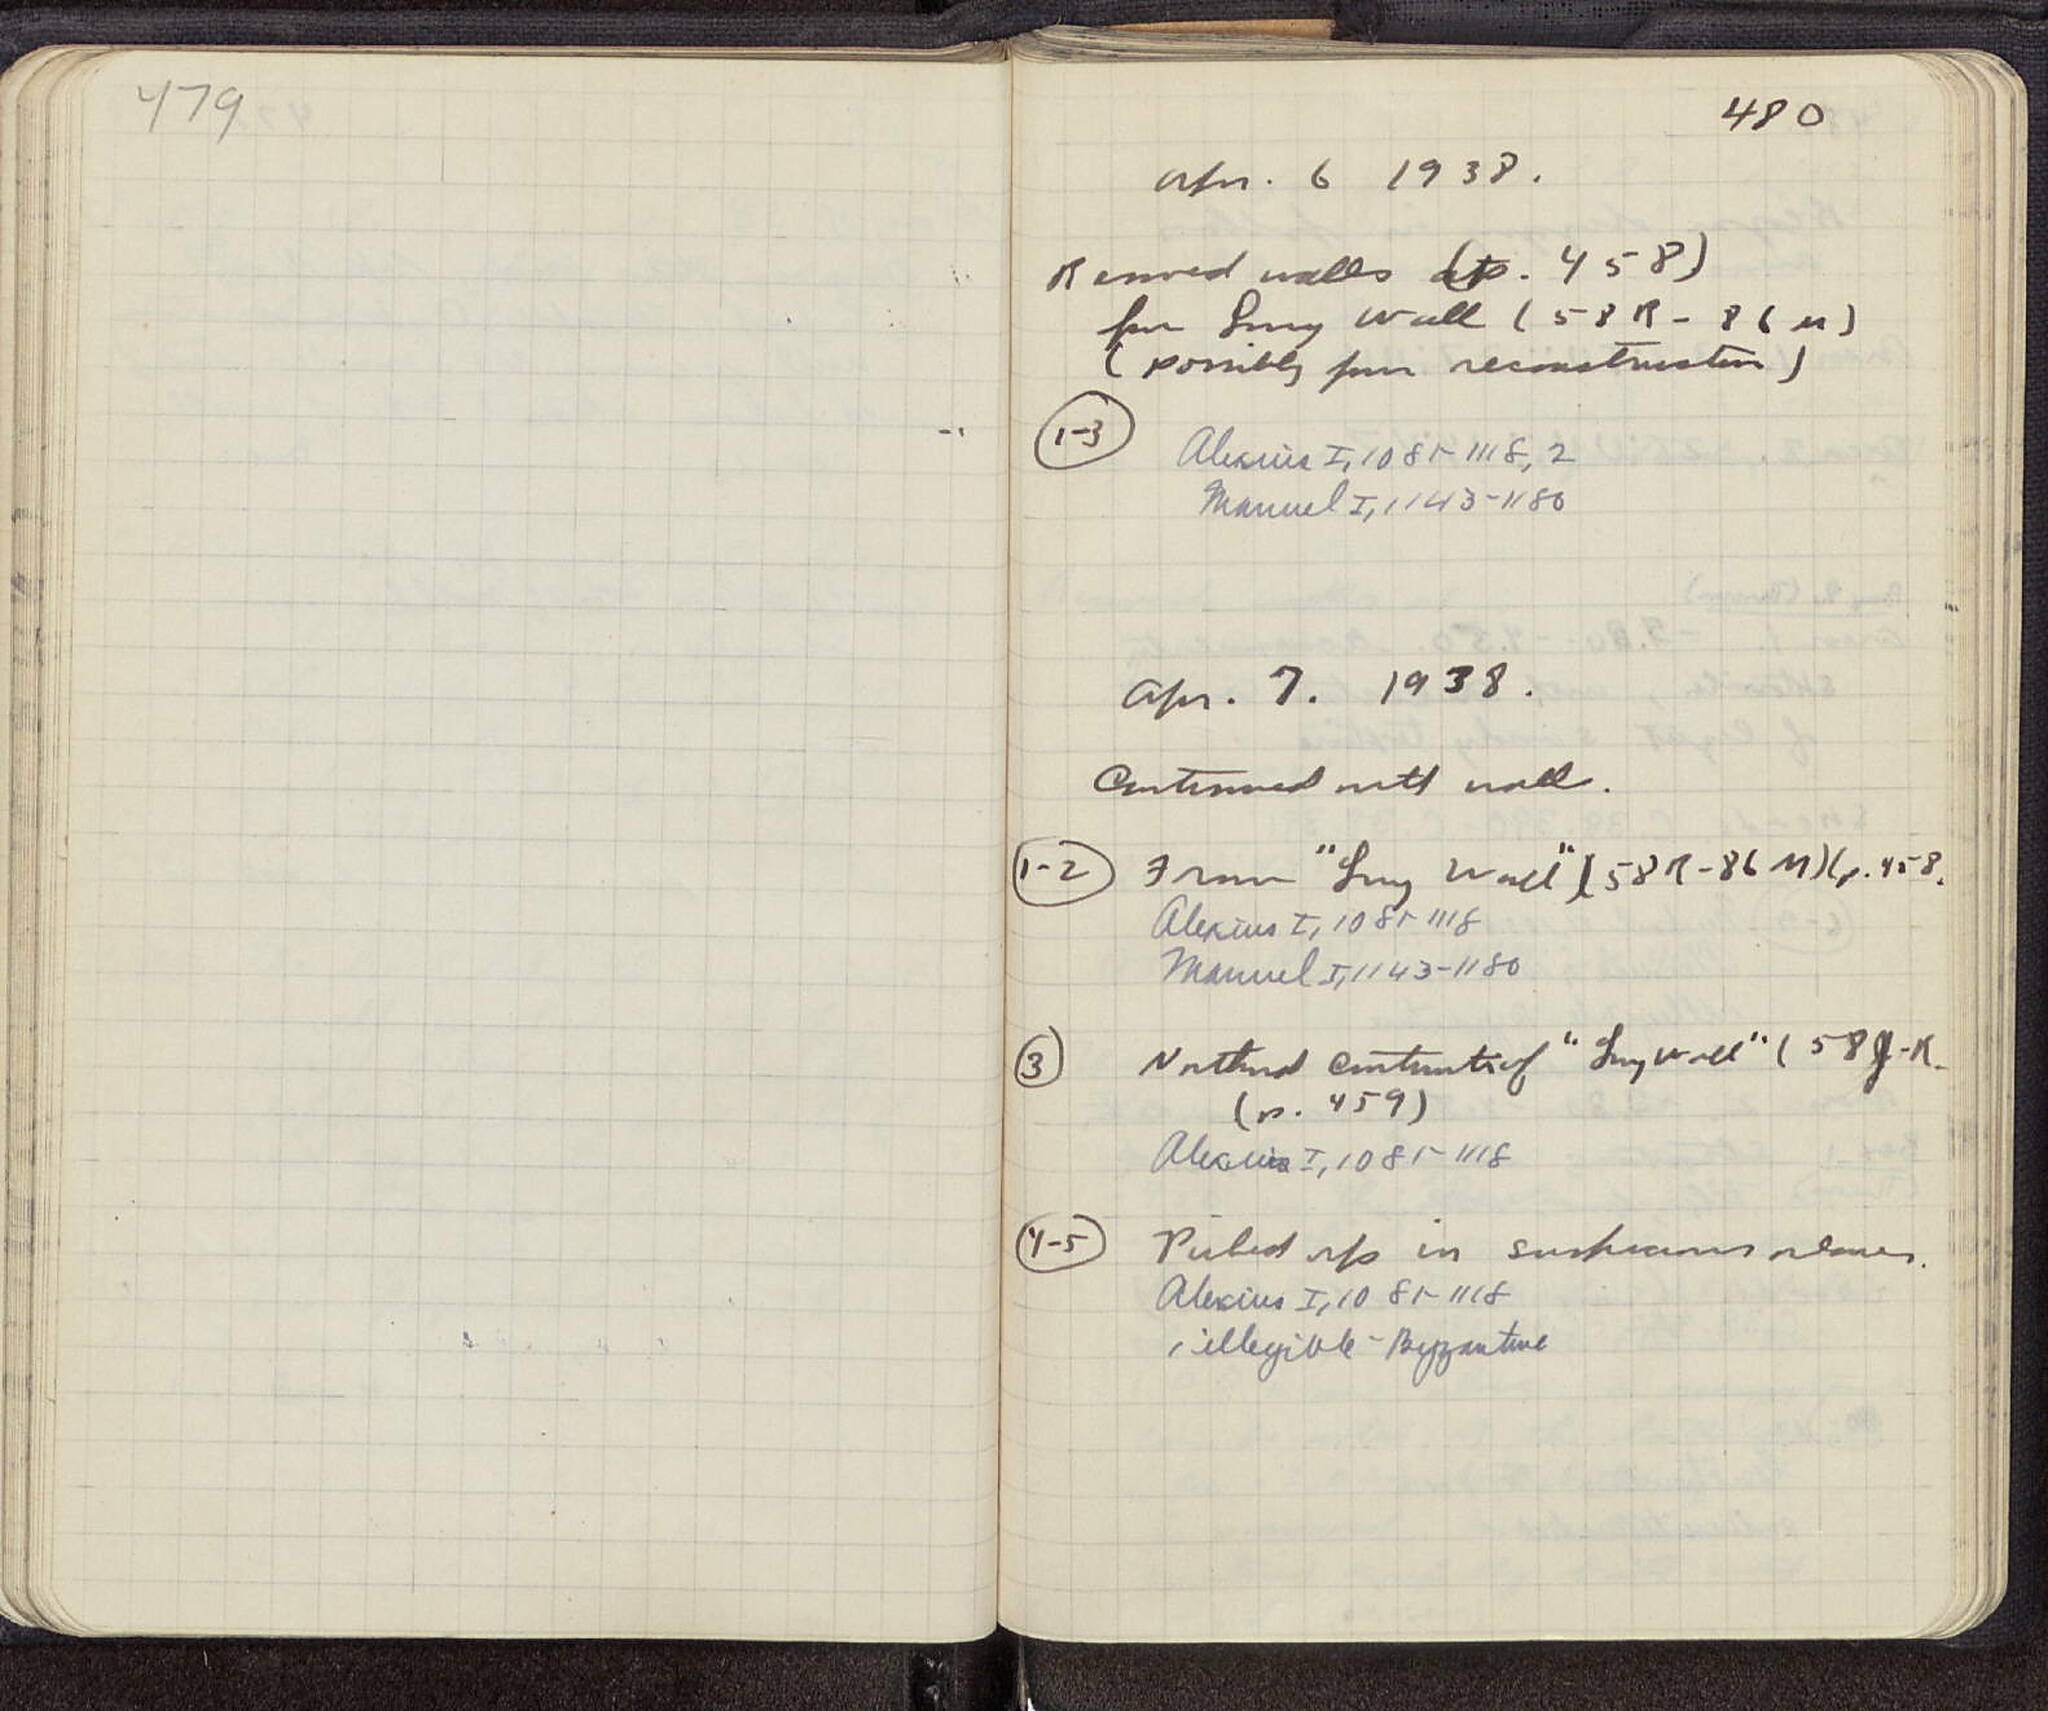 479
480
Apr. 6 1938.
Removed walls (p. 458)
for Long Wall (58R-86M)
(possibly from reconstruction)
1-3
Alexius I, 1081-1118, 2
Manuel I, 1143-1180
Apr. 7. 1938.
Continued with wall.
1-2 From "Long Wall" (58R-86M)(p. 458.
Alexius I, 1081-1118
Manuel I, 1143-1180
3 Northward of "Long Wall" (58J-R.
(p. 459)
Alexius I, 1081-1118
4-5 Picked up in places.
Alexius I, 1081-1118
1 illegible-Byzantine